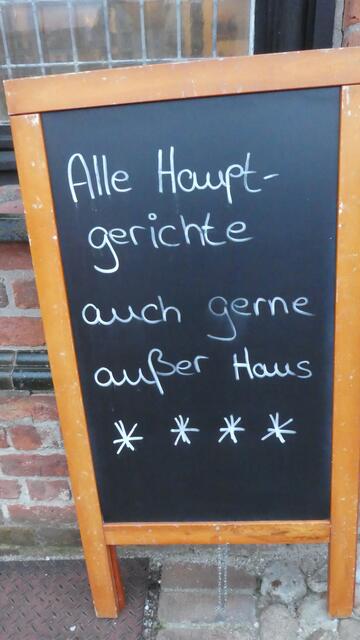 Alle Haupt-
gerichte
auch gerne
außer Haus
* * * *